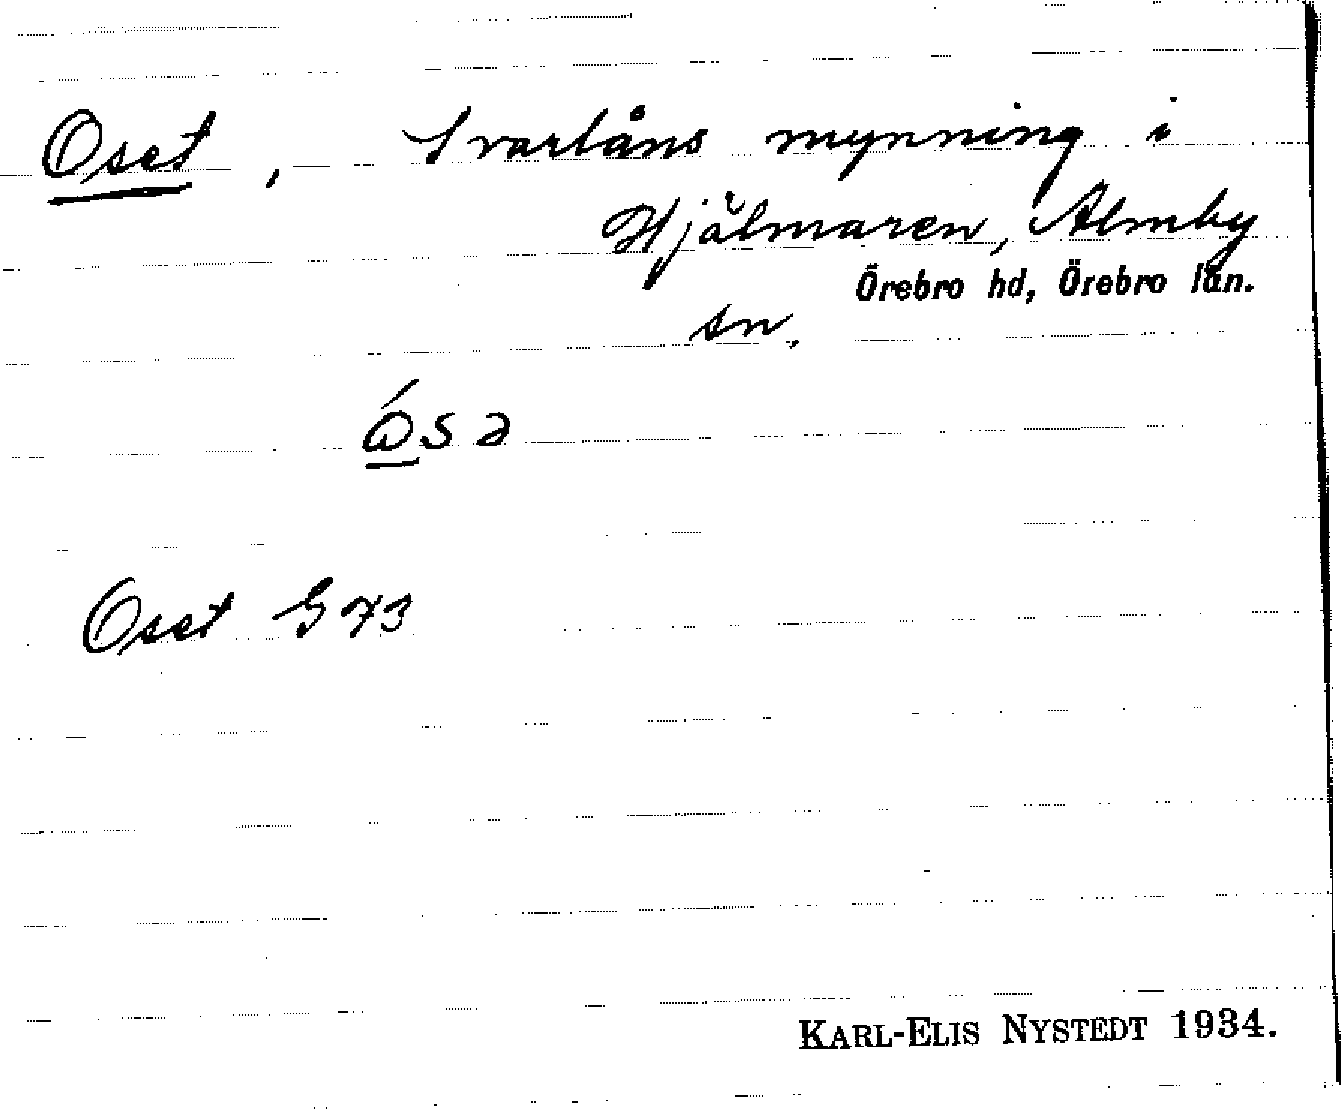 Oset, Svartåns mynning i
Hjälmaren, Almby
Örebro hd, Örebro län.
sn.
Oset G 73
KARL-ELIS NYSTEDT 1934.